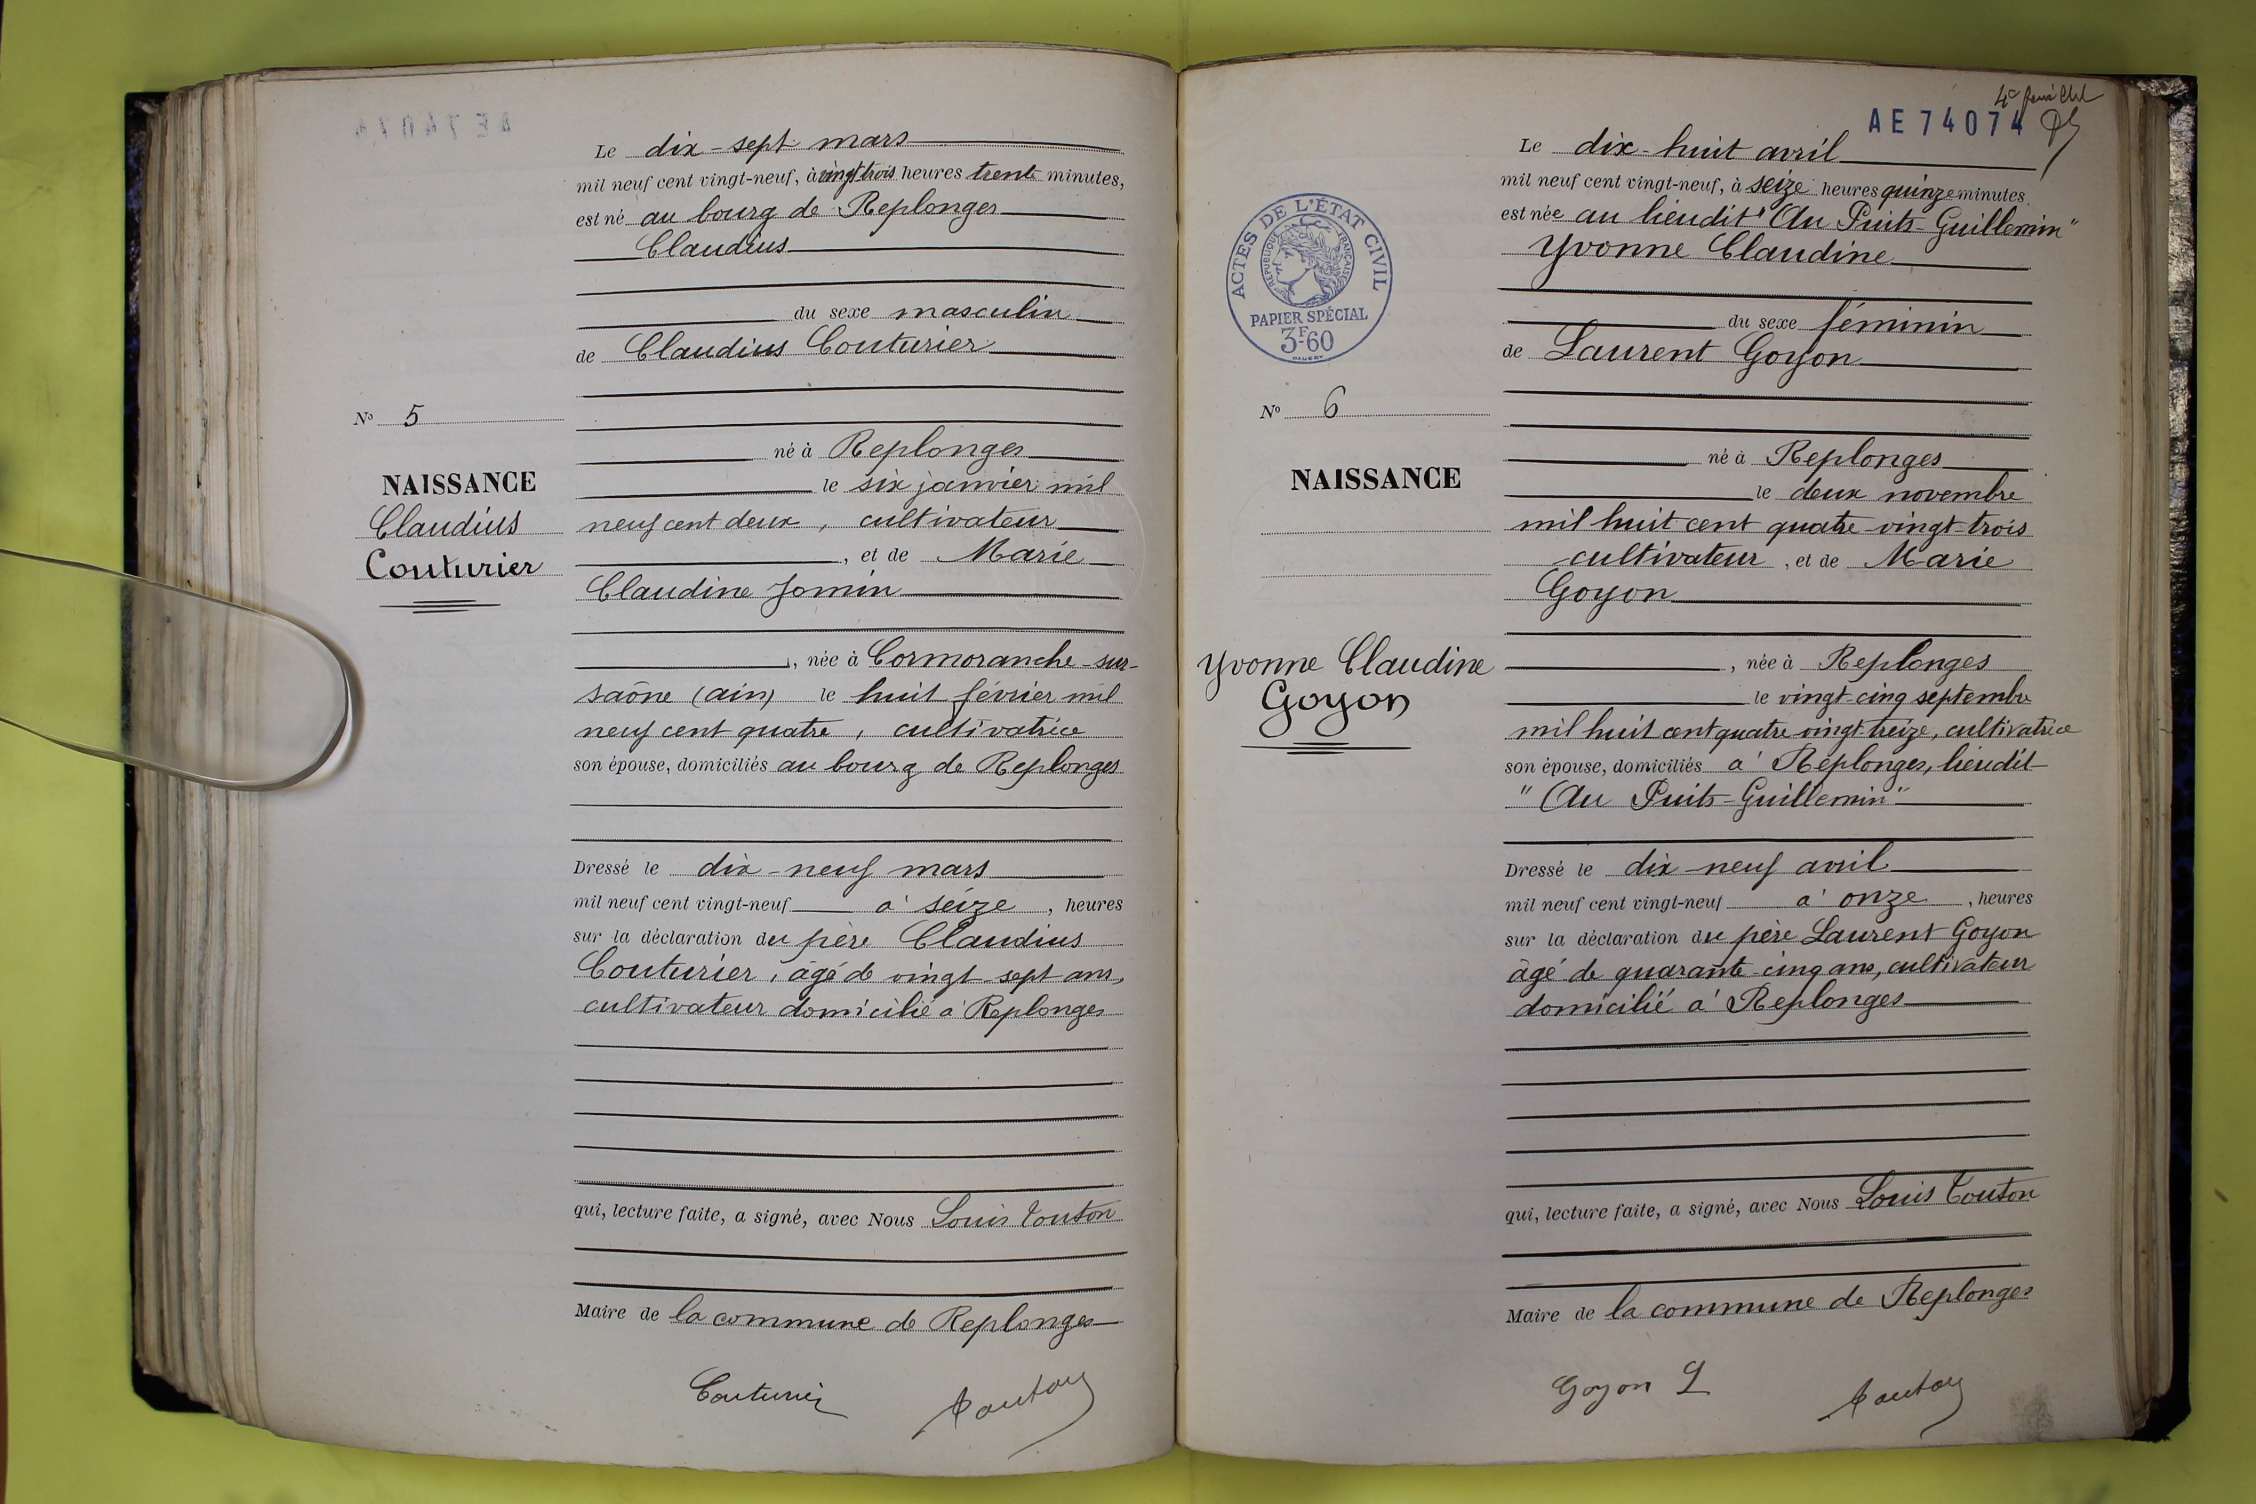 Le dix-sept mars
mil neuf cent vingt-neuf, à vingt trois heures trente minutes,
est né au bourg de Replonges
Claudius
du sexe masculin
de Claudius Couturier
né à Replonges
le six janvier mil
neuf cent deux, cultivateur
, et de Marie
Claudine Jomin
, née à Cormoranche-sur-
saône (ain) le huit février mil
neuf cent quatre, cultivatrice
son épouse, domiciliés au bourg de Replonges
Dressé le dix-neuf mars
mil neuf cent vingt-neuf à seize, heures
sur la déclaration du père Claudius
Couturier, âgé de vingt-sept ans,
cultivateur domicilié à Replonges
qui, lecture faite, a signé, avec Nous Louis Touton
Maire de la commune de Replonges
Couturier
Touton
No 5
NAISSANCE
Claudius
Couturier
AE 74074
4e feuillet
ACTES DE L'ÉTAT CIVIL
RÉPUBLIQUE FRANÇAISE
PAPIER SPÉCIAL
3F.60
No 6
NAISSANCE
Yvonne Claudine
Goyon
Le dix-huit avril
mil neuf cent vingt-neuf, à seize heures quinze minutes
est née au lieudit "Au Puits-Guillemin"
Yvonne Claudine
du sexe féminin
de Laurent Goyon
né à Replonges
le deux novembre
mil huit cent quatre-vingt-trois
cultivateur, et de Marie
Goyon
, née à Replonges
le vingt-cinq septembre
mil huit cent quatre-vingt-treize, cultivatrice
son épouse, domiciliés à Replonges, lieudit
"Au Puits-Guillemin"
Dressé le dix-neuf avril
mil neuf cent vingt-neuf à onze, heures
sur la déclaration du père Laurent Goyon
âgé de quarante-cinq ans, cultivateur
domicilié à Replonges
qui, lecture faite, a signé, avec Nous Louis Touton
Maire de la commune de Replonges
Goyon L
Touton